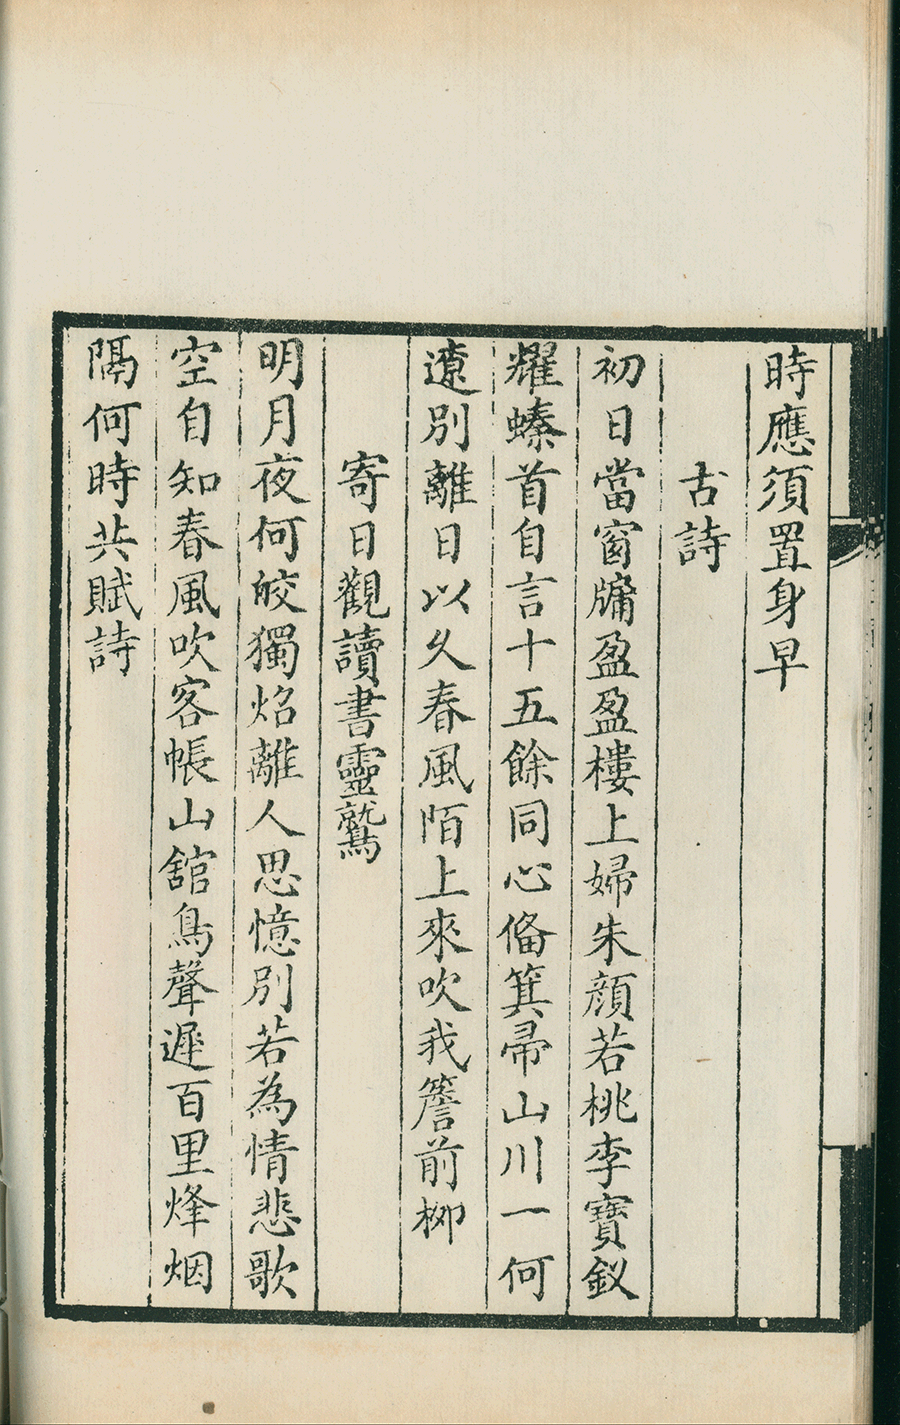 時應須置身早
古詩
初日當窗牗盈盈樓上婦朱顔若桃李寶釵
耀螓首自言十五餘同心偹箕帚山川一何
遼別離日以久春風陌上來吹我簷前柳
寄日觀讀書靈鷲
明月夜何皎獨焰離人思憶別若為情悲歌
空自知春風吹客帳山舘鳥聲遲百里烽烟
隔何時共賦詩